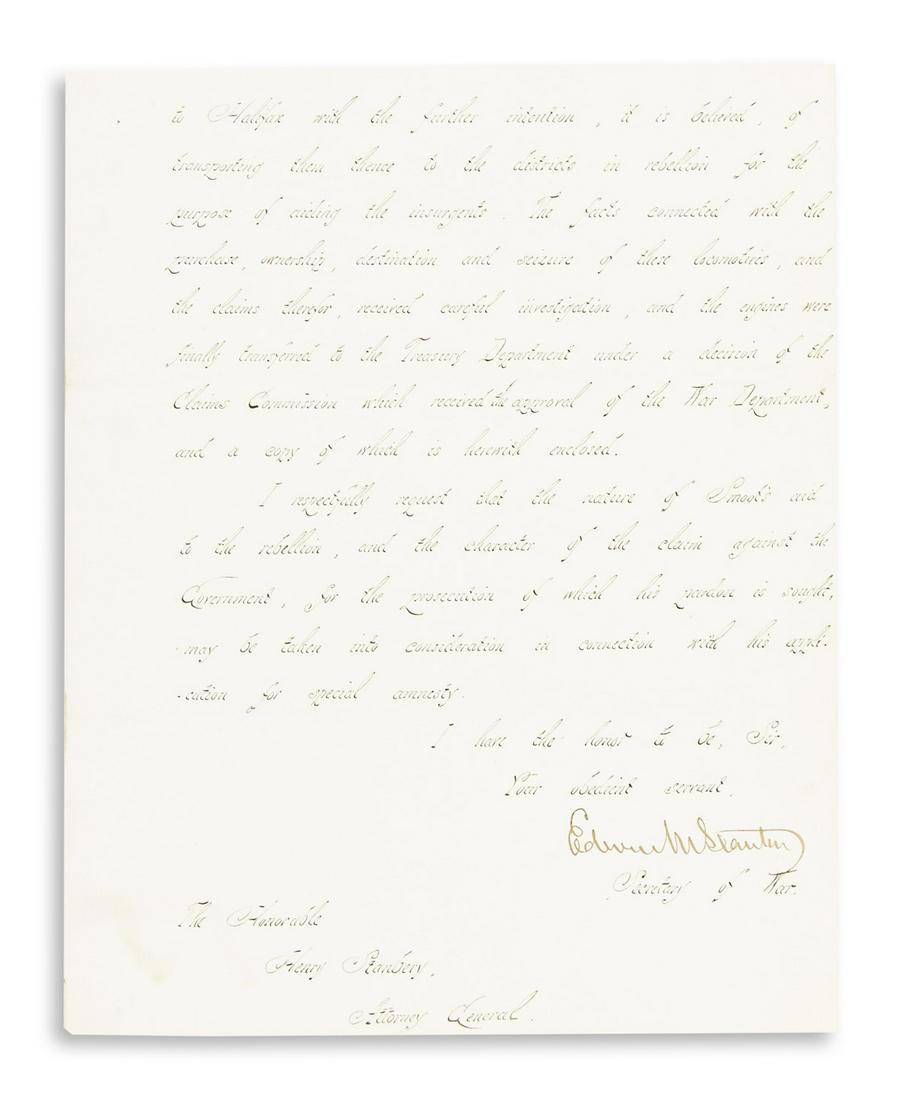 to Halifax with the further intention, it is believed, of
transporting them thence to the districts in rebellion for the
purpose of aiding the insurgents. The facts connected with the
purchase, ownership, destination and seizure of these locomotives, and
the claims therefor, received careful investigation, and the engines were
finally transferred to the Treasury Department under a decision of the
Claims Commission which received the approval of the War Department,
and a copy of which is herewith enclosed.
I respectfully request that the nature of Smoot's aid
to the rebellion, and the character of the claim against the
Government, for the prosecution of which his pardon is sought,
may be taken into consideration in connection with his appli-
-cation for special amnesty.
I have the honor to be, Sir,
Your obedient servant,
Edwin M Stanton
Secretary of War.
The Honorable
Henry Stanbery,
Attorney General.